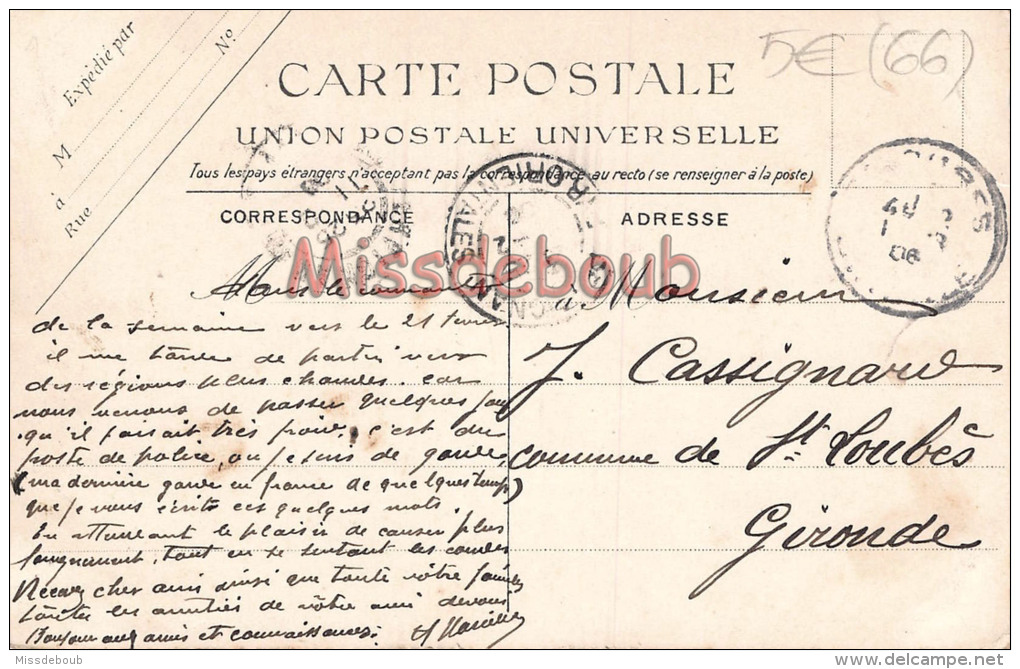 5€ (66)
M Expédié par
à Nº
Rue
CARTE POSTALE
UNION POSTALE UNIVERSELLE
Tous les pays étrangers n'acceptent pas la correspondance au recto (se renseigner à la poste)
CORRESPONDANCE
ADRESSE
Missdeboub
à Monsieur
J. Cassignard
commune de St Loubès
Gironde
de la semaine vers le 21
il me tarde de partir vers
des régions plus chaudes. car
nous venons de passer quelques jours
qu'il faisait très froid. c'est du
poste de police, où je suis de garde,
(ma dernière garde en france de quelques temps)
que je vous écrits ces quelques mots.
En attendant le plaisir de causer plus
longuement, tout en se sentant les coudes
Recevez cher ami ainsi que toute votre famille
toutes les amitiés de votre ami dévoué
Bonjour aux amis et connaissances.
Missdeboub
http://missdeboub.delcampe.net